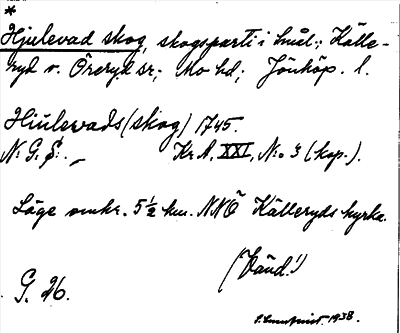 *
Hjulevad skog, skogsparti i Smål.; Källe-
ryd o. Öreryd sr; Mo hd; Jönköp. l.
Hiulevads (skog) 1745.
N: G. S: — Kr. A. XXI, No 3 (kop.).
Läge omkr. 5½ km. NNÖ Källeryds kyrka.
(Vänd!)
G. 26.
1938.